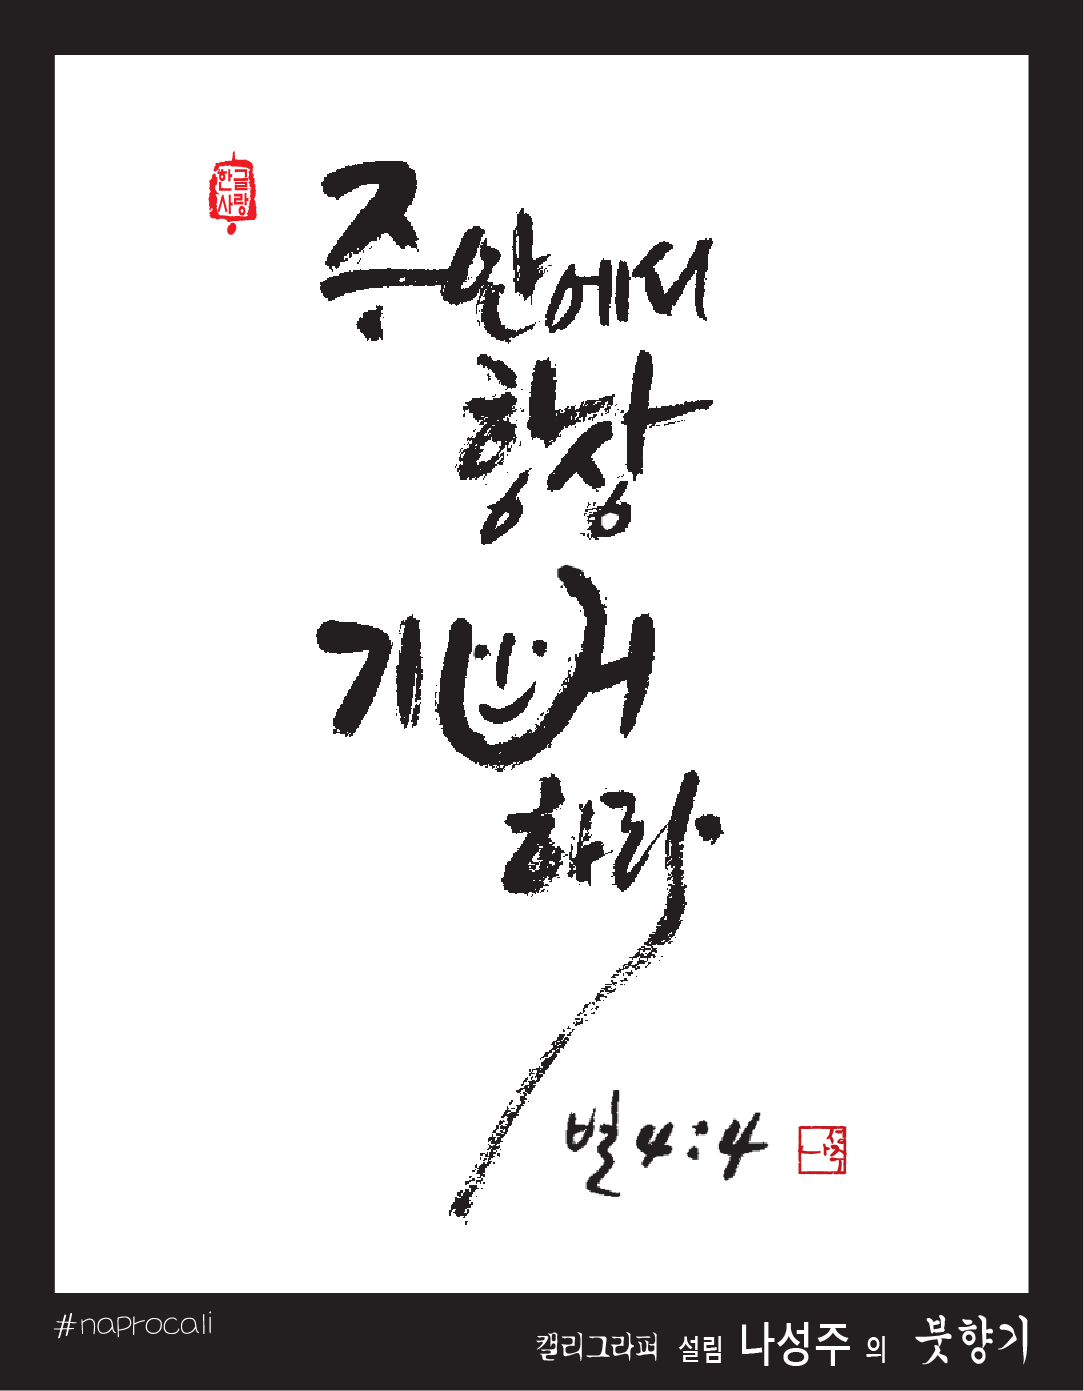 한글
사랑
주 안에서
항상
기뻐
하라
빌 4:4
성주
나
#naprocali
캘리그라퍼 설림 나성주 의 붓향기